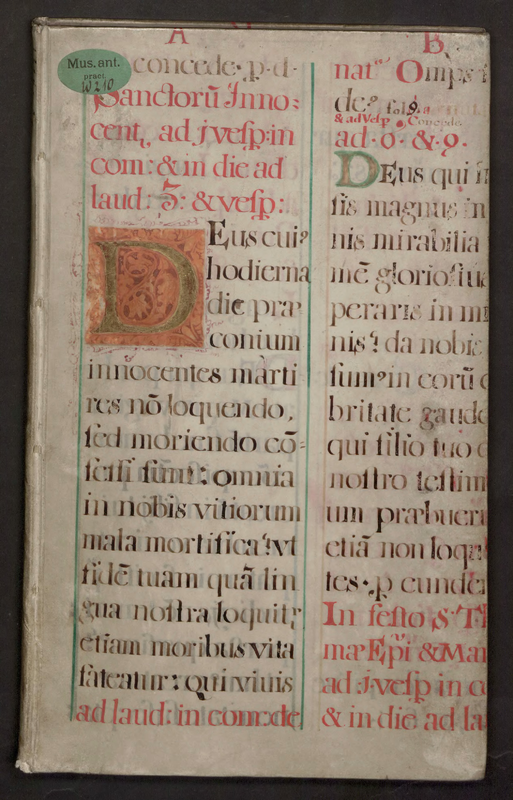 A
Mus. ant.
pract.
W 210
concede·p·d·
Sanctorū Inno:
cent, ad j vesp:in
com: & in die ad
laud: 3: & vesp:
DEus cui?
hodierna
die præ
conium
innocentes marti
res nō loquendo,
sed moriendo cō=
fessi sunt: omnia
in nobis vitiorum
mala mortifica: vt
fidē tuam quā lin
gua nostra loquitr
etiam moribus vita
fateatur: qui viuis
ad laud: in com: de
B
nat Omps
de fol 9.
& ad Vesp Concede
ad · o · & · 9 ·
DEus qui
tis magnus in
nis mirabilia
mē gloriosius
peraris in
nis: da nobis
sum in corū
britate gaude
qui filio tuo
nostro testim
um præbuer
etiā non loqu
tes·p eunde
In festo S T
mæ Epi & Mar
ad j vesp in
& in die ad la